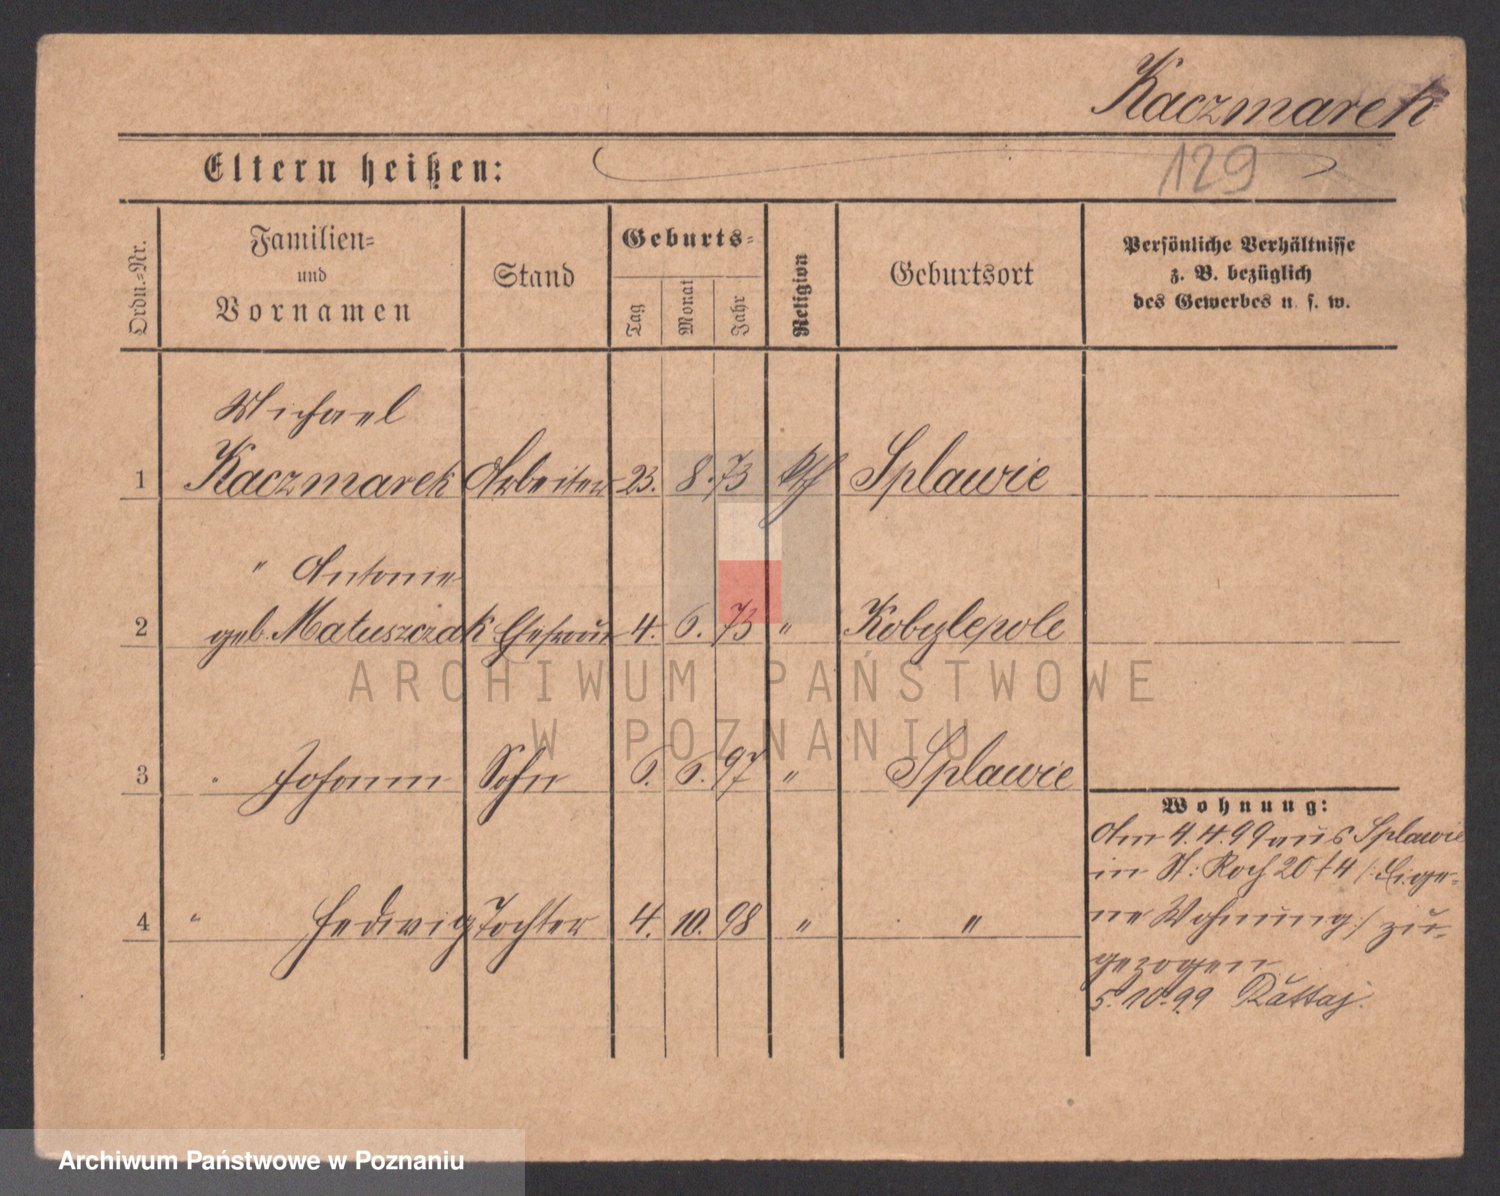 Kaczmarek
129
Eltern heißen:
Ordn.-Nr.
Familien-
und
Vornamen
Stand
Geburts-
Tag
Monat
Jahr
Religion
Geburtsort
Persönliche Verhältnisse
z. B. bezüglich
des Gewerbes u. s. w.
Michael
1 Kaczmarek Arbeiter 23. 8. 73 kth Splawie
" Antonie
2 geb. Matuszczak Ehefrau 4. 6. 73 " Kobylepole
3 " Johann Sohn 6. 6. 97 " Splawie
4 " Hedwig Tochter 4. 10. 98 " "
Wohnung:
Am 4.4.99 aus Splawie
in St: Roch 20/4 /: Eige-
ne Wohnung :/ zu-
gezogen
5.10.99 Rattaj.
ARCHIWUM PAŃSTWOWE
W POZNANIU
Archiwum Państwowe w Poznaniu